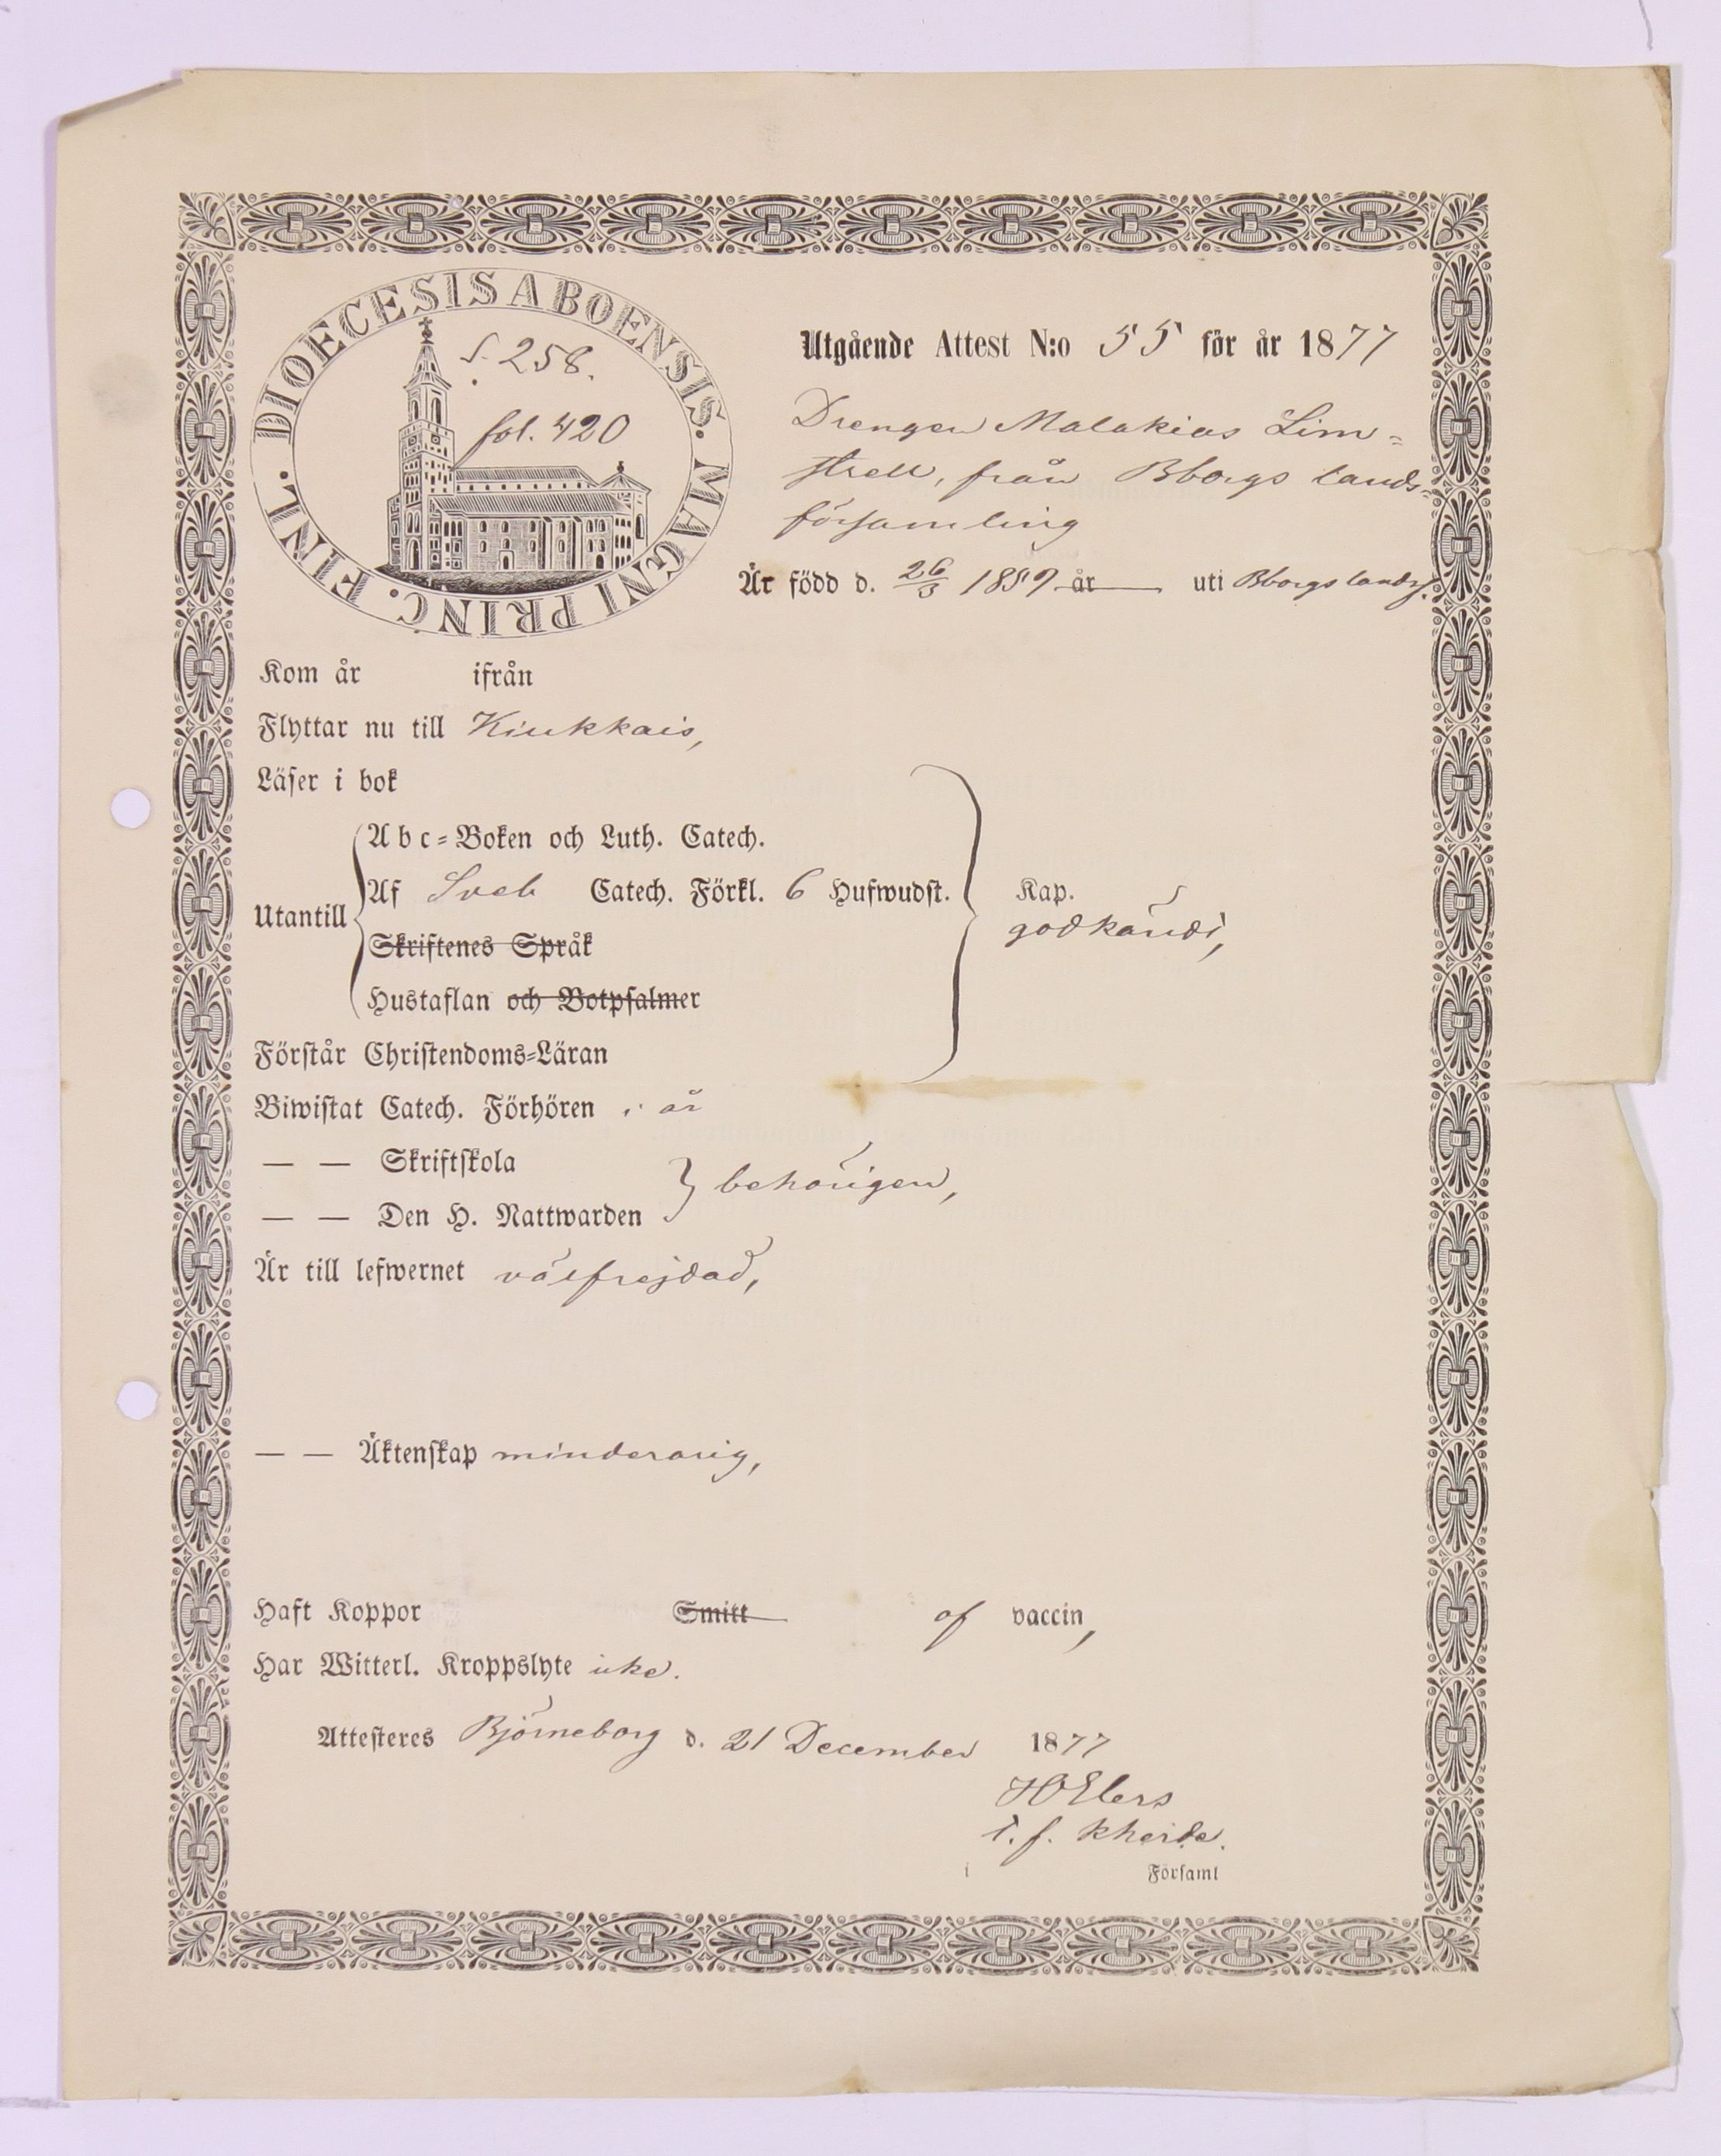 DIOECESIS ABOENSIS. MAGNI PRINC. FINL.
S. 258.
fol. 420
Utgående Attest N:o 55 för år 1877
Drengen Malakias Lim-
strell, från Bborgs lands-
församling
Är född d. 26/3 1859 år uti Bborgs landsf.
Kom år ifrån
Flyttar nu till Kiukkais,
Läser i bok
Utantill
Abc-Boken och Luth. Catech.
Af Sveb Catech. Förkl. 6 Hufwudst. Kap.
godkändt,
Skriftenes Språk
Hustaflan och Botpsalmer
Förstår Christendoms-Läran
Biwistat Catech. Förhören i år
— — Skriftskola
behörigen,
— — Den H. Nattwarden
Är till lefwernet välfrejdad,
— — Äktenskap minderårig,
Haft Koppor Smitt af vaccin,
Har Witterl. Kroppslyte icke.
Attesteres Björneborg d. 21 December 1877
HElers
t. f. kherde.
i Församl